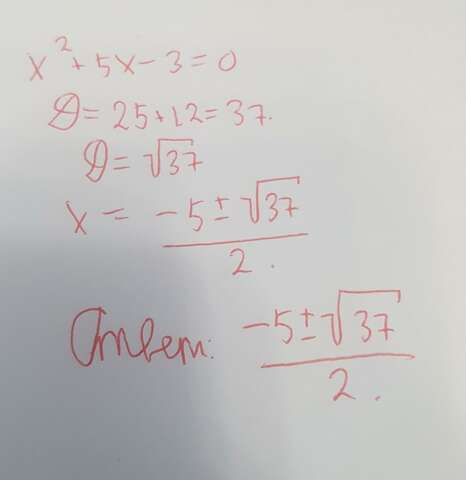 x² + 5x - 3 = 0
D = 25 + 12 = 37.
D = √37
x = (-5 ± √37) / 2.
Ответ: (-5 ± √37) / 2.